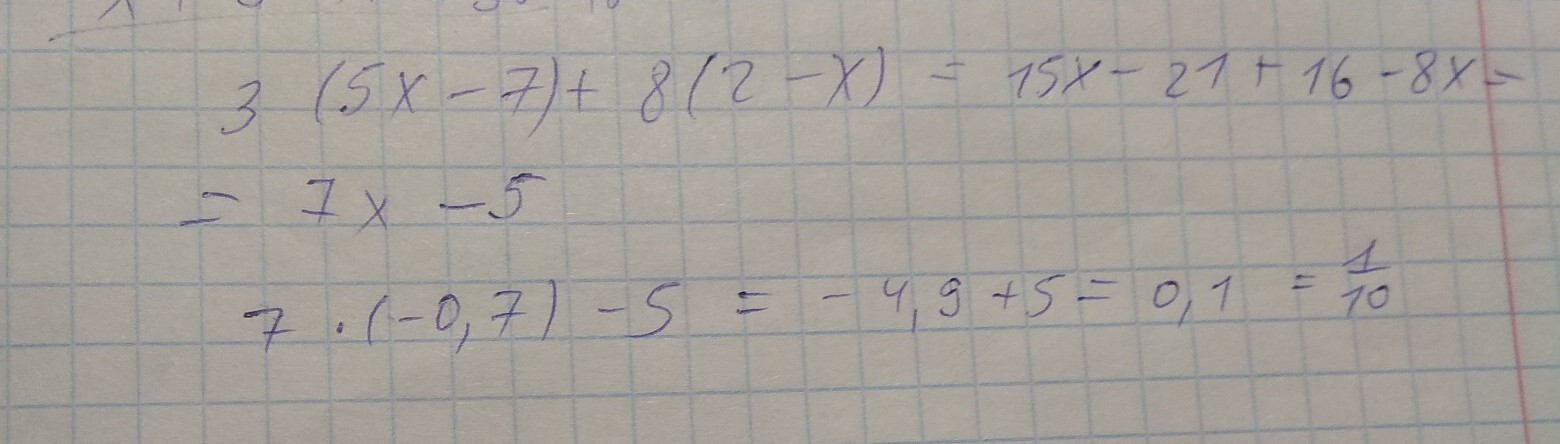 3 (5x - 7) + 8 (2 - x) = 15x - 21 + 16 - 8x =
= 7x - 5
7 · (-0,7) - 5 = - 4,9 + 5 = 0,1 = 1/10